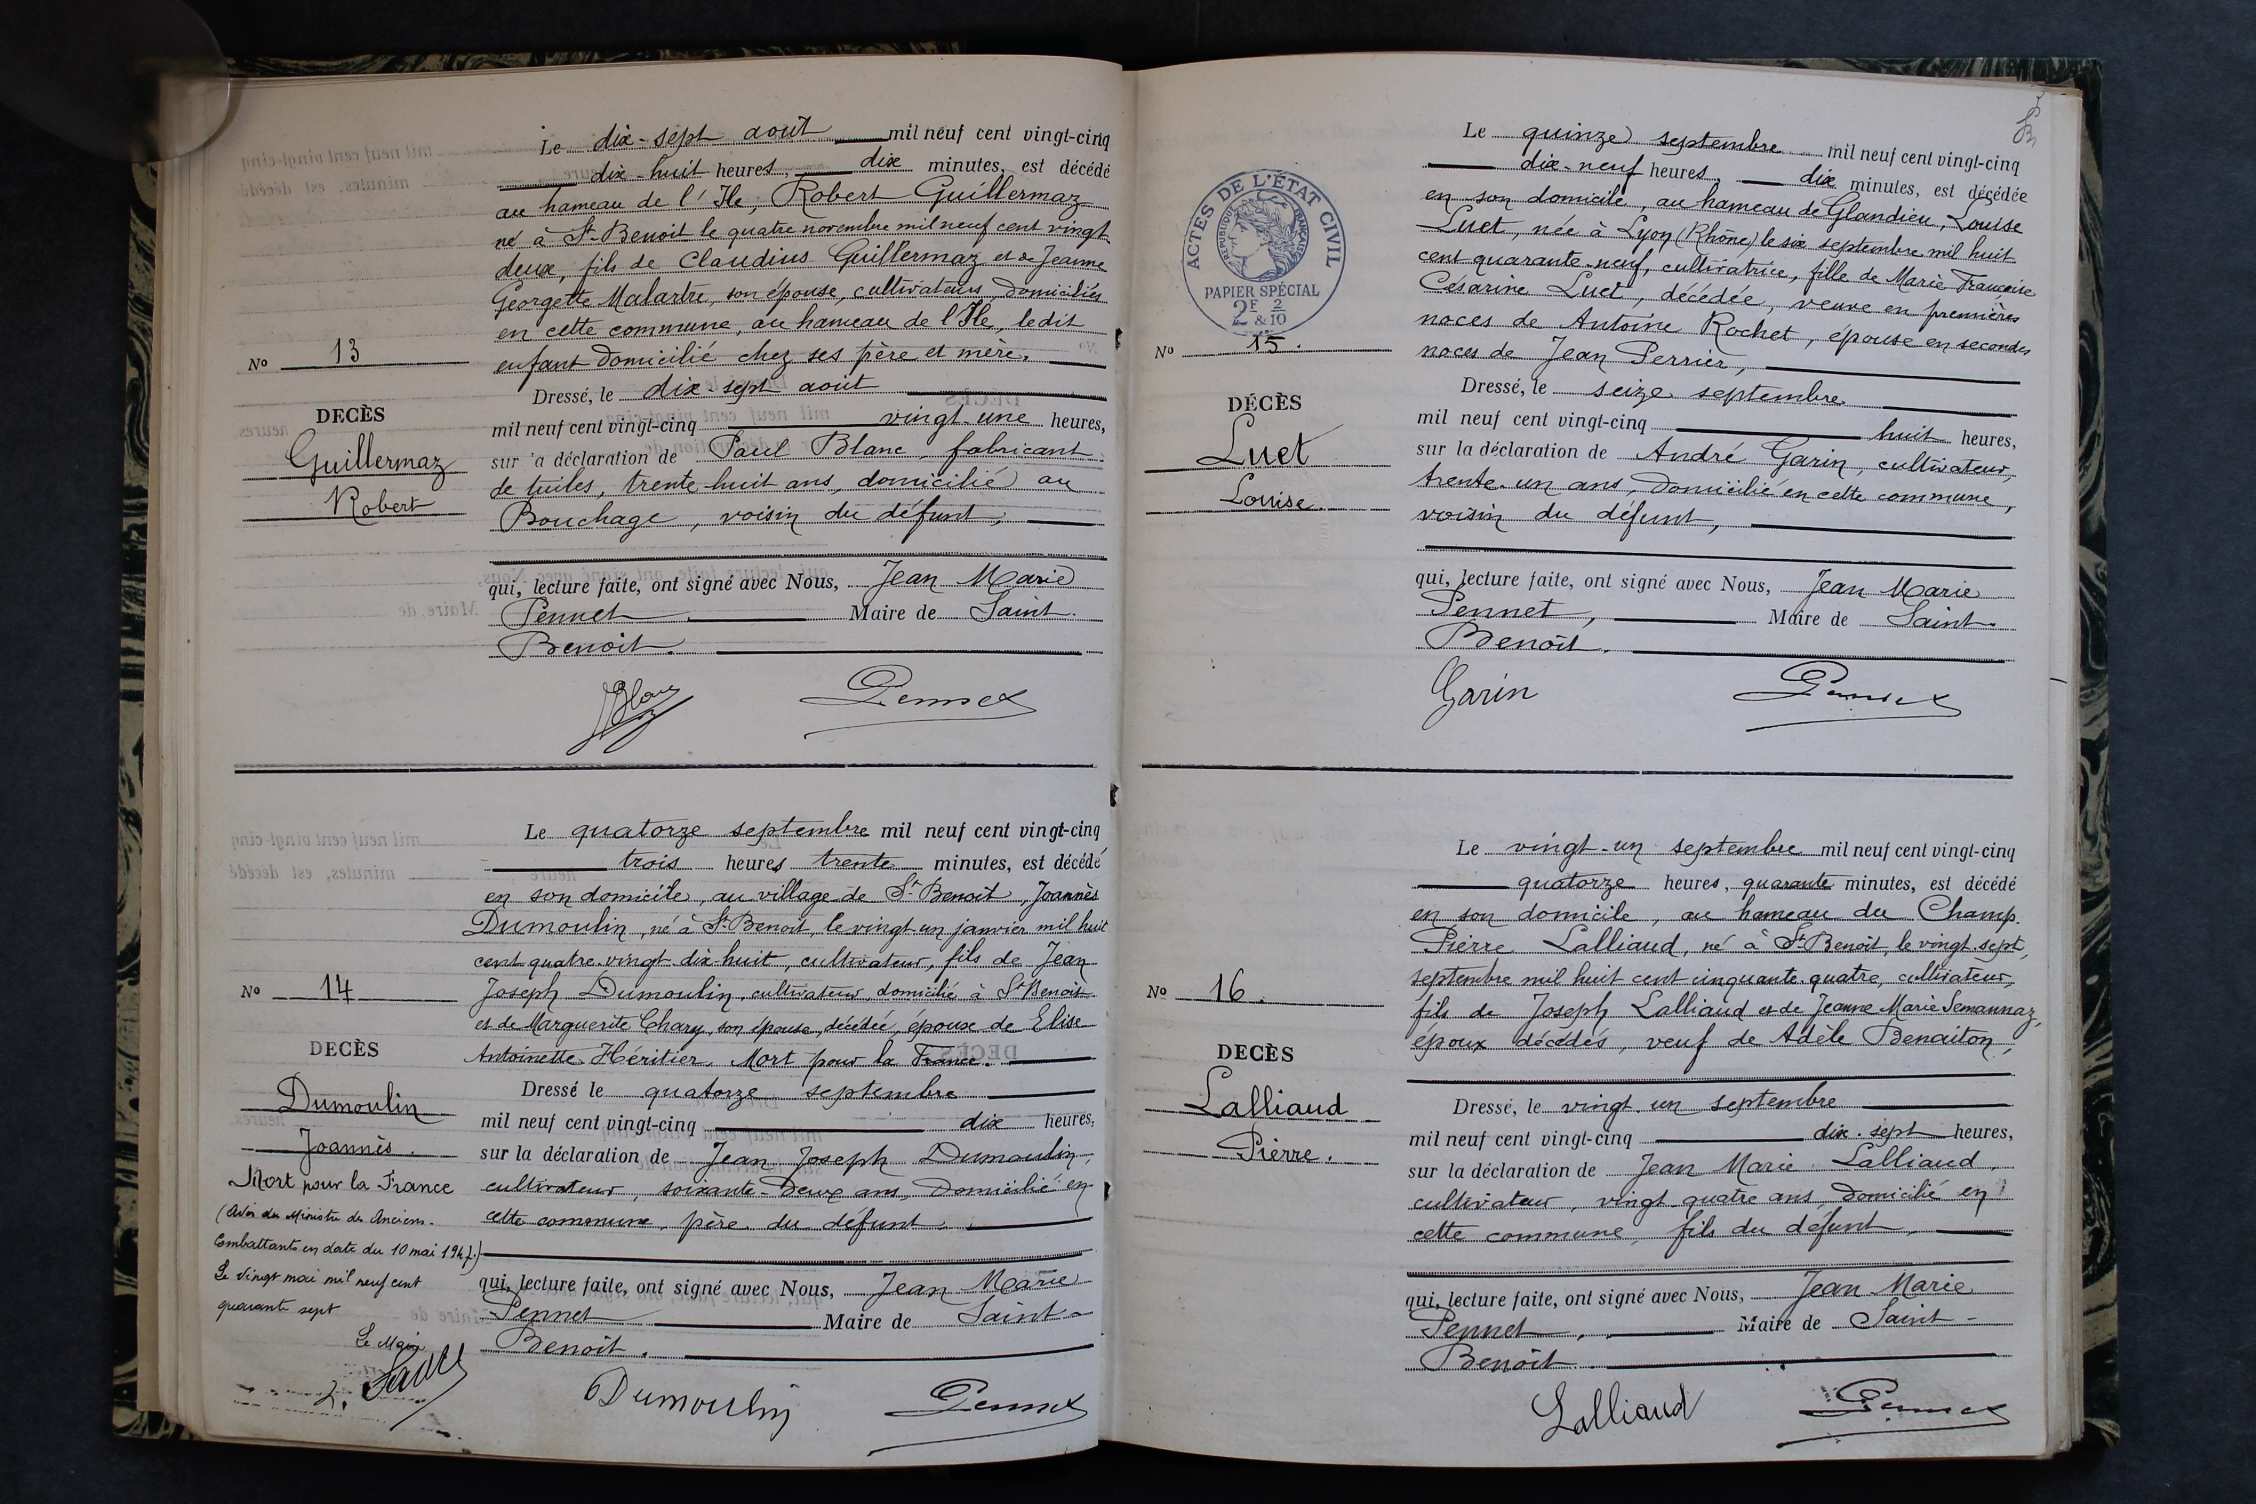 Le dix-sept août mil neuf cent vingt-cinq
dix-huit heures, dix minutes, est décédé
au hameau de l'Ile, Robert Guillermaz
né à St-Benoit le quatre novembre mil neuf cent vingt
deux, fils de Claudius Guillermaz et de Jeanne
Georgette Malartre, son épouse, cultivateurs, domiciliés
en cette commune, au hameau de l'Ile, ledit
enfant domicilié chez ses père et mère.
Dressé, le dix-sept août
mil neuf cent vingt-cinq vingt-une heures,
sur la déclaration de Paul Blanc, fabricant
de tuiles, trente-huit ans, domicilié au
Bouchage, voisin du défunt,
qui, lecture faite, ont signé avec Nous, Jean Marie
Pennet Maire de Saint-
Benoit.
No 13
DECÈS
Guillermaz
Robert
Blanc
Pennet
Le quatorze septembre mil neuf cent vingt-cinq
trois heures trente minutes, est décédé
en son domicile, au village de St-Benoit, Joannès
Dumoulin, né à St-Benoit, le vingt-un janvier mil huit
cent quatre-vingt-dix-huit, cultivateur, fils de Jean
Joseph Dumoulin, cultivateur, domicilié à St-Benoit
et de Marguerite Chary, son épouse, décédée, époux de Elise
Antoinette Héritier. Mort pour la France.
Dressé le quatorze septembre
mil neuf cent vingt-cinq dix heures,
sur la déclaration de Jean Joseph Dumoulin,
cultivateur, soixante-deux ans, domicilié en
cette commune, père du défunt,
qui, lecture faite, ont signé avec Nous, Jean Marie
Pennet Maire de Saint-
Benoit.
No 14
DECÈS
Dumoulin
Joannès.
Mort pour la France
(Avis du Ministre des Anciens-
Combattants en date du 10 mai 1947.)
Le vingt mai mil neuf cent
quarante sept
Le Maire
Dumoulin
Pennet
ACTES DE L'ÉTAT CIVIL
RÉPUBLIQUE FRANÇAISE
PAPIER SPÉCIAL
2F & 2/10
Le quinze septembre mil neuf cent vingt-cinq
dix-neuf heures, dix minutes, est décédée
en son domicile, au hameau de Glandieu, Louise
Luet, née à Lyon (Rhône) le six septembre mil huit
cent quarante-neuf, cultivatrice, fille de Marie Françoise
Césarine Luet, décédée, veuve en premières
noces de Antoine Rochet, épouse en secondes
noces de Jean Perrier,
Dressé, le seize septembre
mil neuf cent vingt-cinq huit heures,
sur la déclaration de André Garin, cultivateur,
trente-un ans, domicilié en cette commune,
voisin du défunt,
qui, lecture faite, ont signé avec Nous, Jean Marie
Pennet, Maire de Saint-
Benoit.
No 15.
DÉCÈS
Luet
Louise.
Garin
Pennet
Le vingt-un septembre mil neuf cent vingt-cinq
quatorze heures, quarante minutes, est décédé
en son domicile, au hameau du Champ
Pierre Lalliaud, né à St-Benoit, le vingt-sept
septembre mil huit cent cinquante-quatre, cultivateur,
fils de Joseph Lalliaud et de Jeanne Marie Semannaz,
époux décédés, veuf de Adèle Benaiton,
Dressé, le vingt un septembre
mil neuf cent vingt-cinq dix-sept heures,
sur la déclaration de Jean Marie Lalliaud,
cultivateur, vingt-quatre ans, domicilié en
cette commune, fils du défunt,
qui, lecture faite, ont signé avec Nous, Jean Marie
Pennet, Maire de Saint-
Benoit
No 16.
DECÈS
Lalliaud
Pierre.
Lalliaud
Pennet